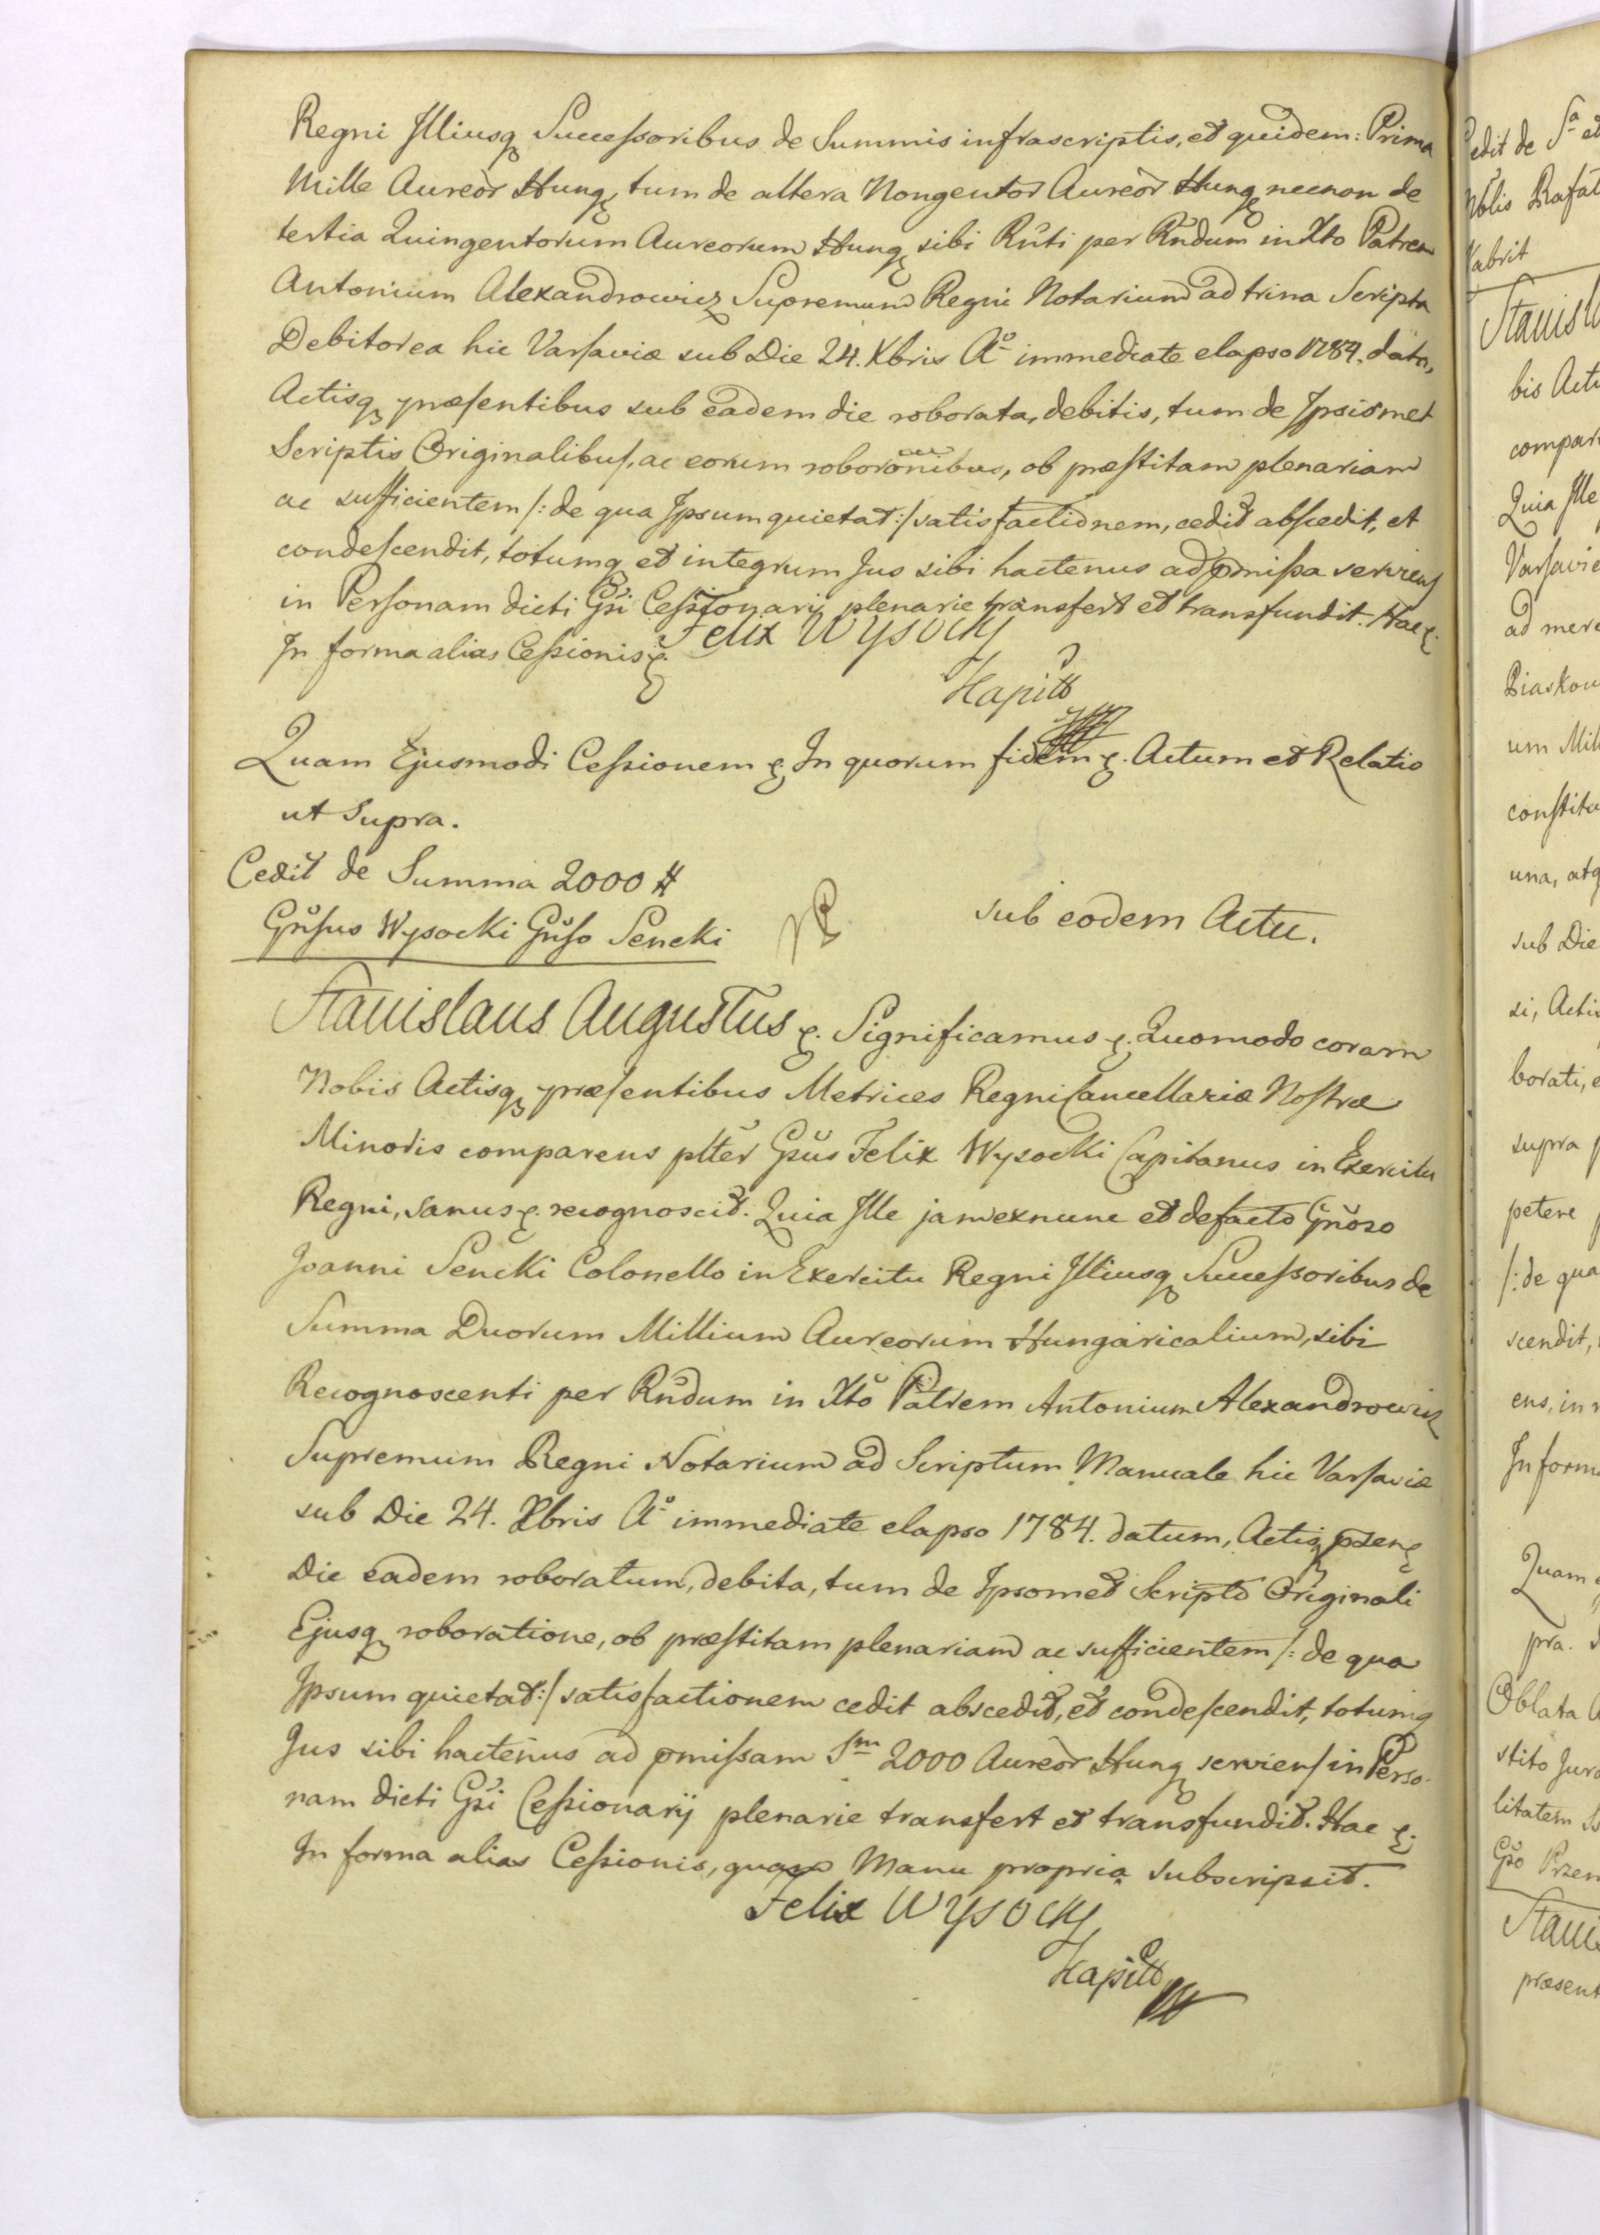 Regni Illiusq Successoribus de Summis infrascriptis, et quidem: Prima
Mille Aureor̃ Hung, tum de altera Nongentor̃ Aureor̃ Hung necnon de
tertia Quingentorum Aureorum Hung sibi Rñti per Rñdum in Xto Patrem
Antonium Alexandrowicz Supremum Regni Notarium ad trina Scripta
Debitorea hic Varsaviæ sub Die 24. Xbris Aº immediate elapso 1784. data,
Actisq præsentibus sub eadem die roborata, debitis, tum de Ipsismet
Scriptis Originalibus, ac eorum roborõnibus, ob præstitam plenariam
ac sufficientem /: de qua Ipsum quietat :/ satisfactionem, cedit abscedit, et
condescendit, totumq et integrum Jus sibi hactenus ad pmissa serviens
in Personam dicti Gsi Cessionarij plenarie transfert et transfundit. Hac
In forma alias Cessionis
Felix Wysocky
Kapitt
Quam Ejusmodi Cessionem In quorum fidem Actum et Relatio
ut Supra.
Cedit de Summa 2000 #
Gñsus Wysocki Gñso Sencki
sub eodem Actu.
Stanislaus Augustus Significamus Quomodo coram
Nobis Actisq præsentibus Metrices Regni Cancellariæ Nostræ
Minoris comparens pltter Gsus Felix Wysocki Capitanus in Exercitu
Regni, sanus recognoscit. Quia Ille jam exnunc et defacto Gñoso
Joanni Sencki Colonello in Exercitu Regni Illiusq Successoribus de
Summa Duorum Millium Aureorum Hungaricalium, sibi
Recognoscenti per Rñdum in Xto Patrem Antonium Alexandrowicz
Supremum Regni Notarium ad Scriptum Manuale hic Varsaviæ
sub Die 24. Xbris Aº immediate elapso 1784. datum, Actisq pzen
Die eadem roboratum, debita, tum de Ipsomet Scripto Originali
Ejusq roboratione, ob præstitam plenariam ac sufficientem /: de qua
Ipsum quietat :/ satisfactionem cedit abscedit, et condescendit, totumq
Jus sibi hactenus ad pmissam Sm 2000 Aureor̃ Hung serviens in Perso-
nam dicti Gsi Cessionarij plenarie transfert et transfundit. Hac
In forma alias Cessionis, quam Manu propria subscripsit.
Felix Wysocky
Kapitt
edit de Sa et
Nblis Rafał
Stanisl
bis Actu
compar
Quia Ille
Varsavie
ad mere
Piaskow
um Mill
constitu
una, atq
sub Die
si, Actis
borati, e
supra p
petere p
/: de qua
scendit,
ens, in
In form
Quam
pra.
Oblata
stito Jura
litatem
Gso Przem
Stani
præsent